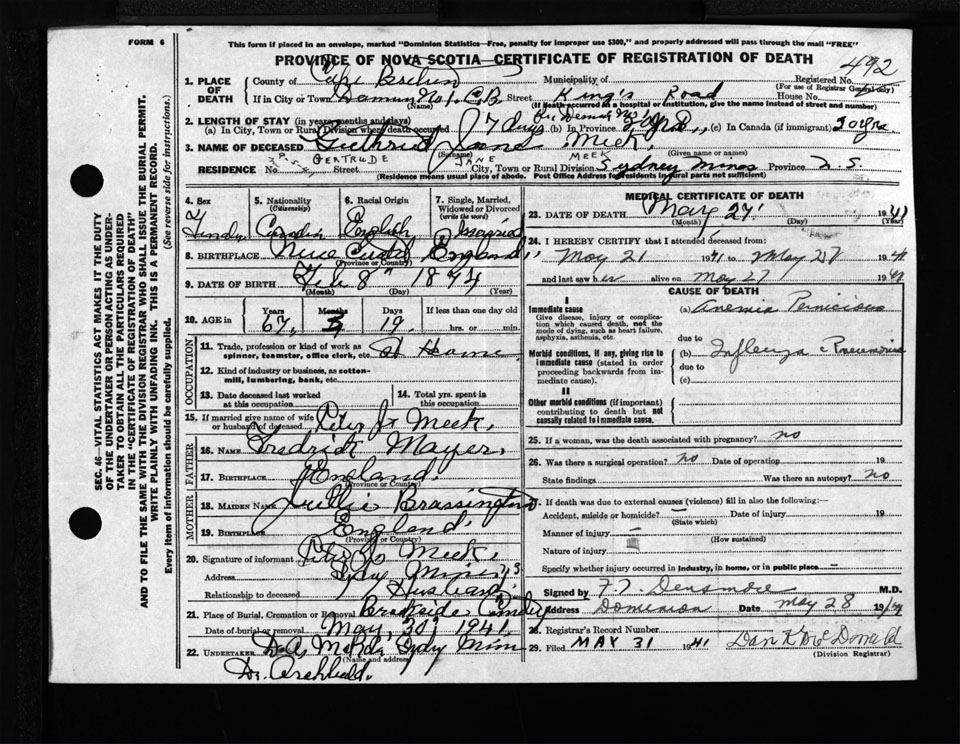 FORM 6
This form if placed in an envelope, marked "Dominion Statistics—Free, penalty for improper use $300," and properly addressed will pass through the mail "FREE"
PROVINCE OF NOVA SCOTIA—CERTIFICATE OF REGISTRATION OF DEATH
492
1. PLACE OF DEATH
County of Cape Breton Municipality of Registered No.
(For use of Registrar General only)
If in City or Town No 1. C.B. Street King's Road House No.
(Name) (If death occurred in a hospital or institution, give the name instead of street and number)
2. LENGTH OF STAY (in years, months and days)
(a) In City, Town or Rural Division where death occurred 7 days (b) In Province (c) In Canada (if immigrant) 30 yrs
3. NAME OF DECEASED Jane Meek
(Surname) (Given name or names)
GERTRUDE JANE MEEK
RESIDENCE No. Street City, Town or Rural Division Sydney Mines Province N. S.
(Residence means usual place of abode. Post Office Address for residents in rural parts not sufficient)
4. Sex
5. Nationality (Citizenship)
6. Racial Origin
7. Single, Married, Widowed or Divorced (write the word)
English Married
8. BIRTHPLACE England
(Province or Country)
9. DATE OF BIRTH Feb 8" 1874
(Month) (Day) (Year)
10. AGE in Years Months Days If less than one day old
67 3 19 hrs. or min.
OCCUPATION
11. Trade, profession or kind of work as spinner, teamster, office clerk, etc. At Home
12. Kind of industry or business, as cotton-mill, lumbering, bank, etc.
13. Date deceased last worked at this occupation
14. Total yrs. spent in this occupation
15. If married give name of wife or husband of deceased Meek
FATHER
16. NAME Fredrick Mayer
17. BIRTHPLACE England
(Province or Country)
MOTHER
18. MAIDEN NAME Brassington
19. BIRTHPLACE England
(Province or Country)
20. Signature of informant Meek
Address Sydney Mines N S
Relationship to deceased Husband
21. Place of Burial, Cremation or Removal Brookside
Date of burial or removal May 30" 1941
22. UNDERTAKER Sydney Mines
(Name and address)
Dr. Archibald.
MEDICAL CERTIFICATE OF DEATH
23. DATE OF DEATH May 27 1941
(Month) (Day) (Year)
24. I HEREBY CERTIFY that I attended deceased from:
May 21 1941 to May 27 1941
and last saw her alive on May 27 1941
CAUSE OF DEATH
I
Immediate cause
Give disease, injury or complication which caused death, not the mode of dying, such as heart failure, asphyxia, asthenia, etc.
(a) Anemia Pernicious
due to
Morbid conditions, if any, giving rise to immediate cause (stated in order proceeding backwards from immediate cause).
(b) Influenza Pneumonia
due to
(c)
II
Other morbid conditions (if important) contributing to death but not causally related to immediate cause.
25. If a woman, was the death associated with pregnancy? no
26. Was there a surgical operation? no Date of operation 19
State findings Was there an autopsy? no
27. If death was due to external causes (violence) fill in also the following:—
Accident, suicide or homicide? Date of injury 19
(State which)
Manner of injury
(How sustained)
Nature of injury
Specify whether injury occurred in industry, in home, or in public place
Signed by Densmore M.D.
Address Dominion Date May 28 1941
28. Registrar's Record Number
29. Filed MAY 31 1941 Dan McDonald
(Division Registrar)
SEC. 46—VITAL STATISTICS ACT MAKES IT THE DUTY
OF THE UNDERTAKER OR PERSON ACTING AS UNDERTAKER
TO OBTAIN ALL THE PARTICULARS REQUIRED
IN THE "CERTIFICATE OF REGISTRATION OF DEATH"
AND TO FILE THE SAME WITH THE DIVISION REGISTRAR WHO SHALL ISSUE THE BURIAL PERMIT.
WRITE PLAINLY WITH UNFADING INK. THIS IS A PERMANENT RECORD.
Every item of information should be carefully supplied. (See reverse side for instructions.)